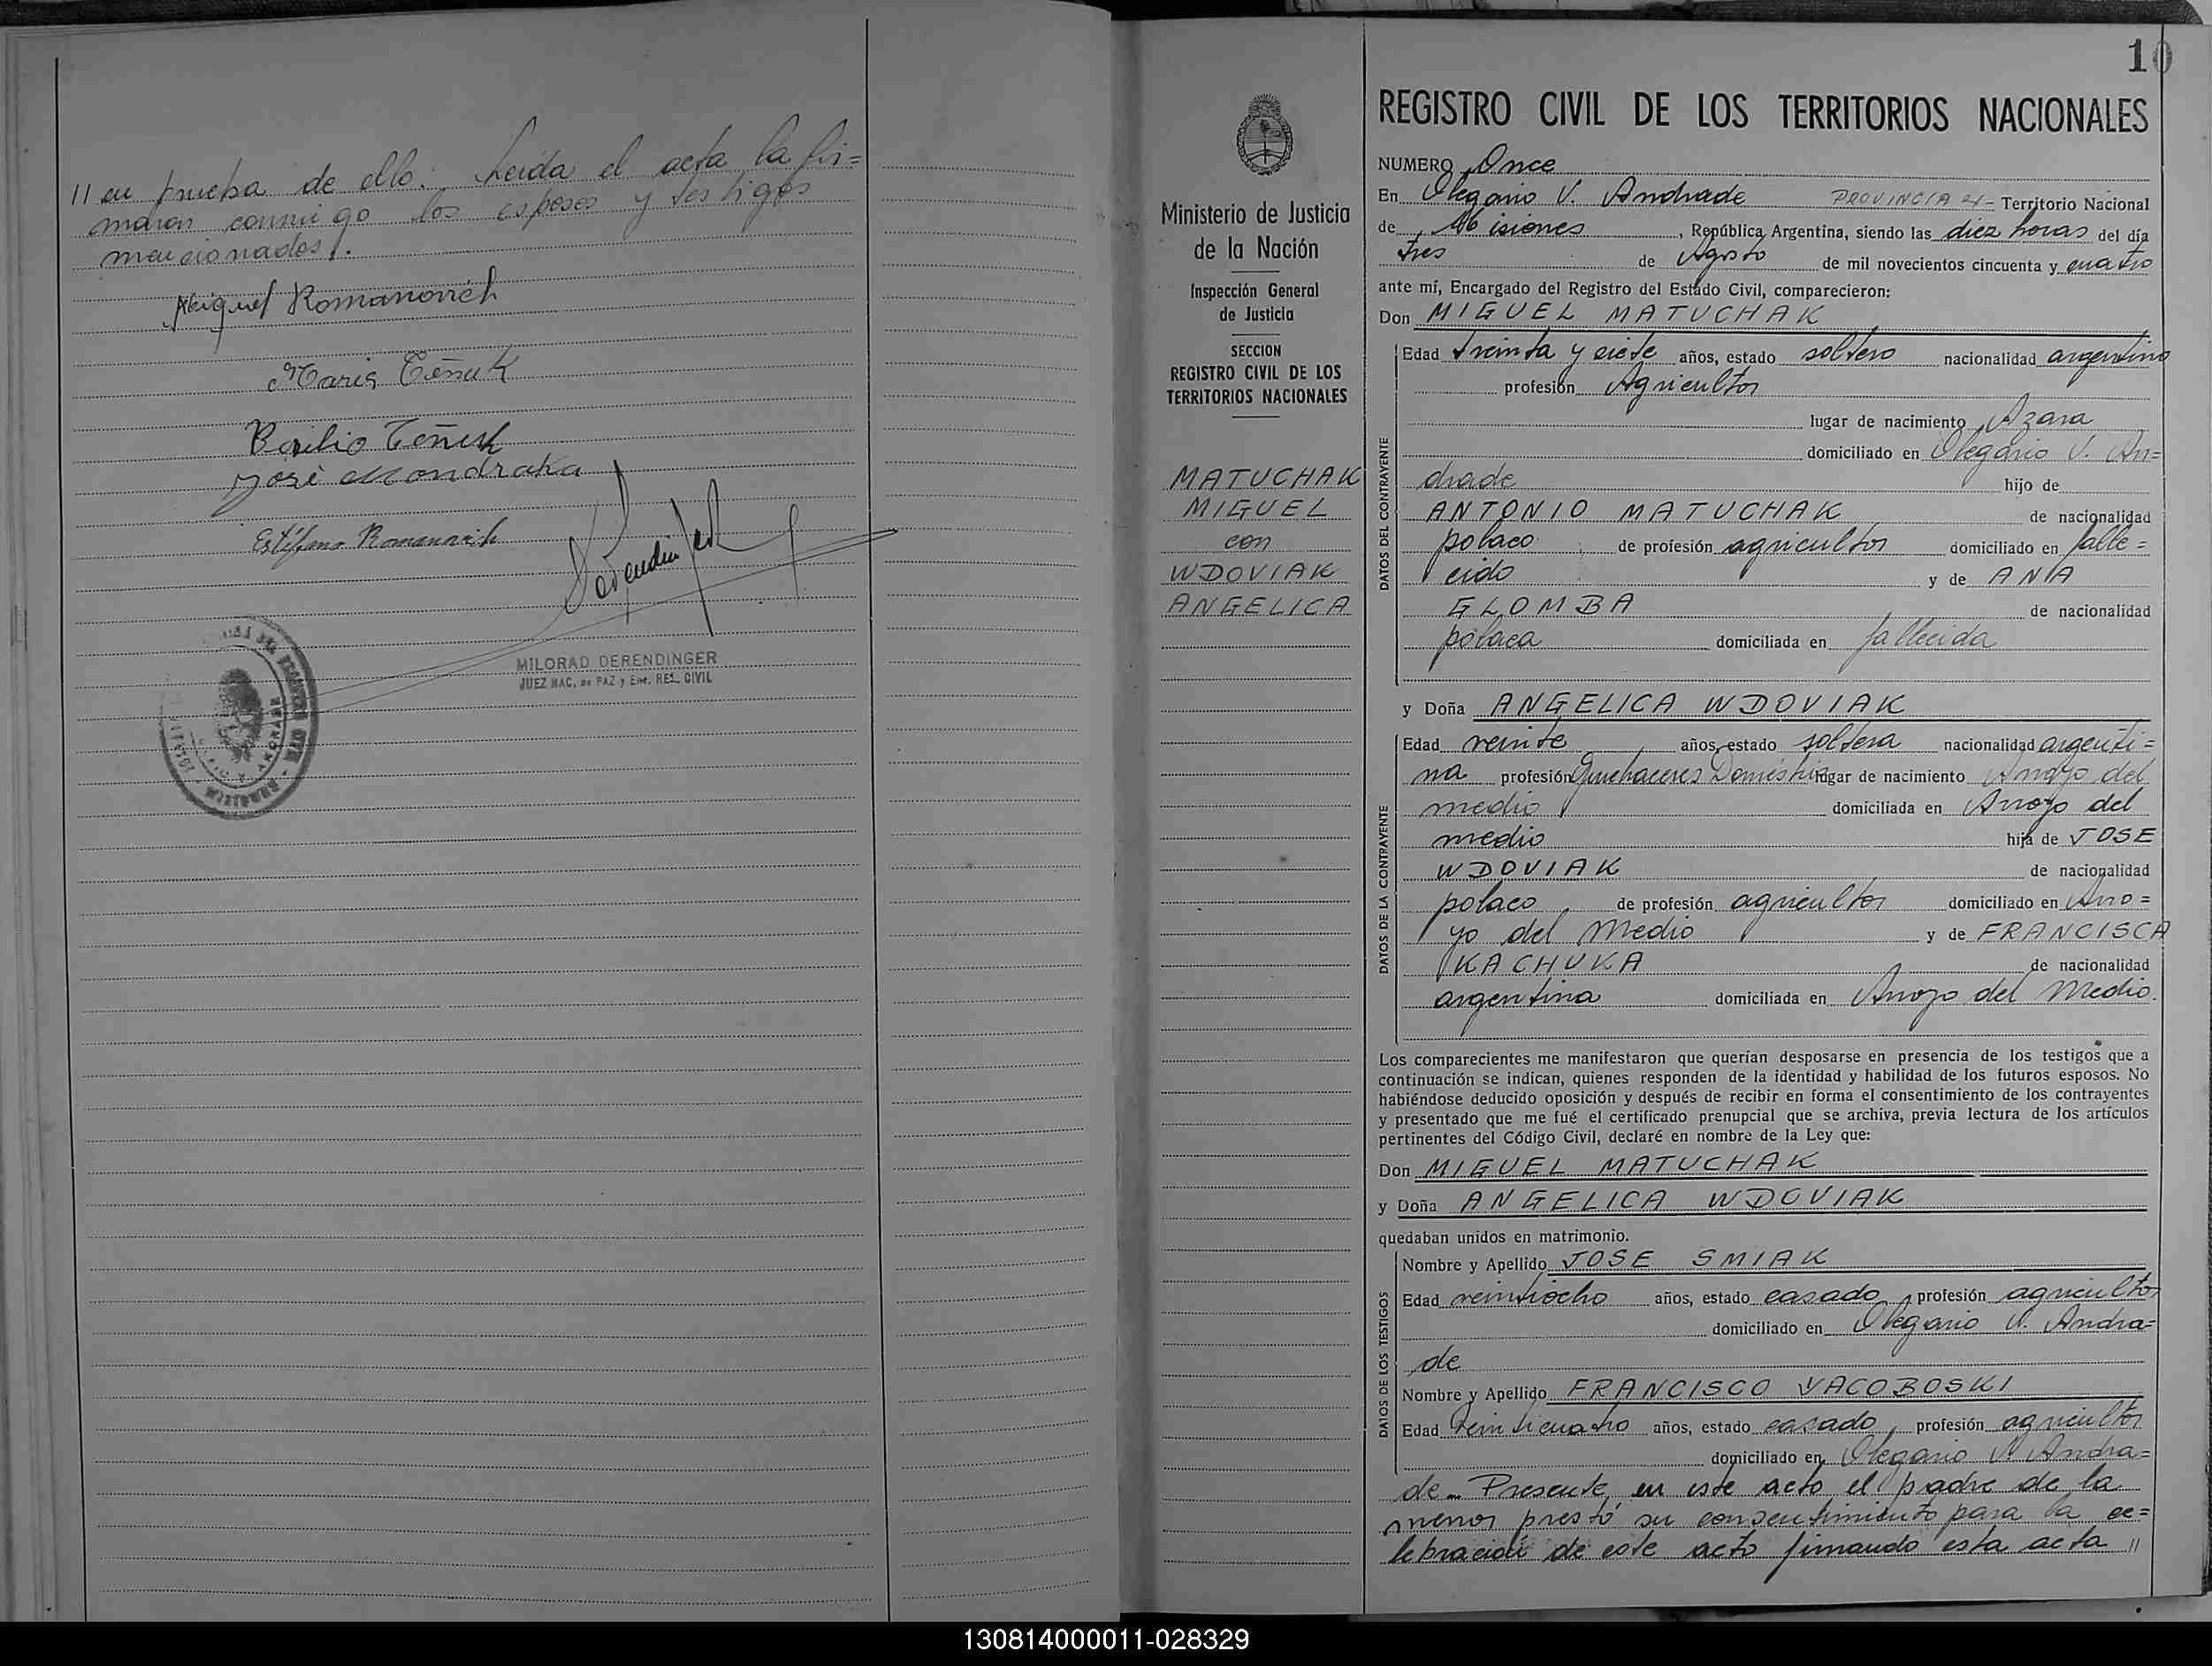 // en prueba de ello. Leída el acta la fir=
maron conmigo los esposos y testigos
mencionados.
Miguel Romanovich
Maria Teñuk
Basilio Teñuk
José Mondraka
Estéfano Romanovich
MILORAD DERENDINGER
JUEZ NAC. de PAZ y Enc. REG. CIVIL
10
Ministerio de Justicia
de la Nación
Inspección General
de Justicia
SECCION
REGISTRO CIVIL DE LOS
TERRITORIOS NACIONALES
MATUCHAK
MIGUEL
con
WDOVIAK
ANGELICA
REGISTRO CIVIL DE LOS TERRITORIOS NACIONALES
NUMERO Once
En Olegario V. Andrade PROVINCIA Territorio Nacional
de Misiones, República Argentina, siendo las diez horas del día
tres de Agosto de mil novecientos cincuenta y cuatro
ante mí, Encargado del Registro del Estado Civil, comparecieron:
Don MIGUEL MATUCHAK
DATOS DEL CONTRAYENTE
Edad treinta y siete años, estado soltero nacionalidad argentino
profesión Agricultor
lugar de nacimiento Azara
domiciliado en Olegario V. An=
drade hijo de
ANTONIO MATUCHAK de nacionalidad
polaco de profesión agricultor domiciliado en falle=
cido y de ANA
GLOMBA de nacionalidad
polaca domiciliada en fallecida
y Doña ANGELICA WDOVIAK
DATOS DE LA CONTRAYENTE
Edad veinte años, estado soltera nacionalidad argenti=
na profesión Quehaceres Domésticos lugar de nacimiento Arroyo del
medio domiciliada en Arroyo del
medio hija de JOSE
WDOVIAK de nacionalidad
polaco, de profesión agricultor domiciliado en Arro=
yo del Medio y de FRANCISCA
KACHUKA de nacionalidad
argentina domiciliada en Arroyo del Medio.
Los comparecientes me manifestaron que querían desposarse en presencia de los testigos que a
continuación se indican, quienes responden de la identidad y habilidad de los futuros esposos. No
habiéndose deducido oposición y después de recibir en forma el consentimiento de los contrayentes
y presentado que me fué el certificado prenupcial que se archiva, previa lectura de los artículos
pertinentes del Código Civil, declaré en nombre de la Ley que:
Don MIGUEL MATUCHAK
y Doña ANGELICA WDOVIAK
quedaban unidos en matrimonio.
DATOS DE LOS TESTIGOS
Nombre y Apellido JOSE SMIAK
Edad veintiocho años, estado casado, profesión agricultor
domiciliado en Olegario V. Andra=
de
Nombre y Apellido FRANCISCO YACOBOSKI
Edad veinticuatro años, estado casado, profesión agricultor
domiciliado en Olegario V. Andra=
de.- Presente en este acto el padre de la
menor prestó su consentimiento para la ce=
lebración de este acto firmando esta acta //
130814000011-028329